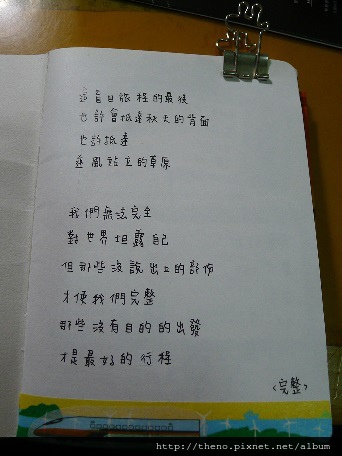 這盲目旅程的最後
也許會抵達秋天的背面
也許抵達
逆風站立的草原
我們無法完全
對世界坦露自己
但那些沒說出上的部份
才使我們完整
那些沒有目的的出發
才是最好的行程
<完整>
http://theno.pixnet.net/album